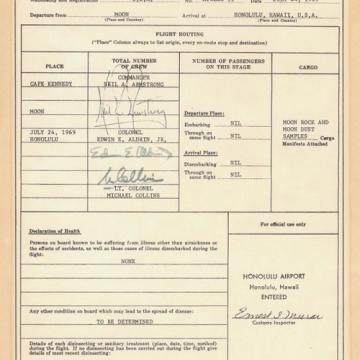 Departure from MOON Arrival at HONOLULU, HAWAII, U.S.A.
(Place and Country) (Place and Country)
FLIGHT ROUTING
("Place" Column always to list origin, every en-route stop and destination)
PLACE
TOTAL NUMBER OF CREW
NUMBER OF PASSENGERS ON THIS STAGE
CARGO
CAPE KENNEDY
COMMANDER
NEIL A. ARMSTRONG
Neil Armstrong
MOON
JULY 24, 1969
HONOLULU
COLONEL
EDWIN E. ALDRIN, JR.
Edwin E. Aldrin
M Collins
LT. COLONEL
MICHAEL COLLINS
Departure Place:
Embarking NIL
Through on same flight NIL
Arrival Place:
Disembarking NIL
Through on same flight NIL
MOON ROCK AND
MOON DUST
SAMPLES Cargo
Manifests Attached
Declaration of Health
Persons on board known to be suffering from illness other than airsickness or
the effects of accidents, as well as those cases of illness disembarked during the
flight:
NONE
Any other condition on board which may lead to the spread of disease:
TO BE DETERMINED
Details of each disinsecting or sanitary treatment (place, date, time, method)
during the flight. If no disinsecting has been carried out during the flight give
details of most recent disinsecting:
For official use only
HONOLULU AIRPORT
Honolulu, Hawaii
ENTERED
Ernest I. Murai
Customs Inspector